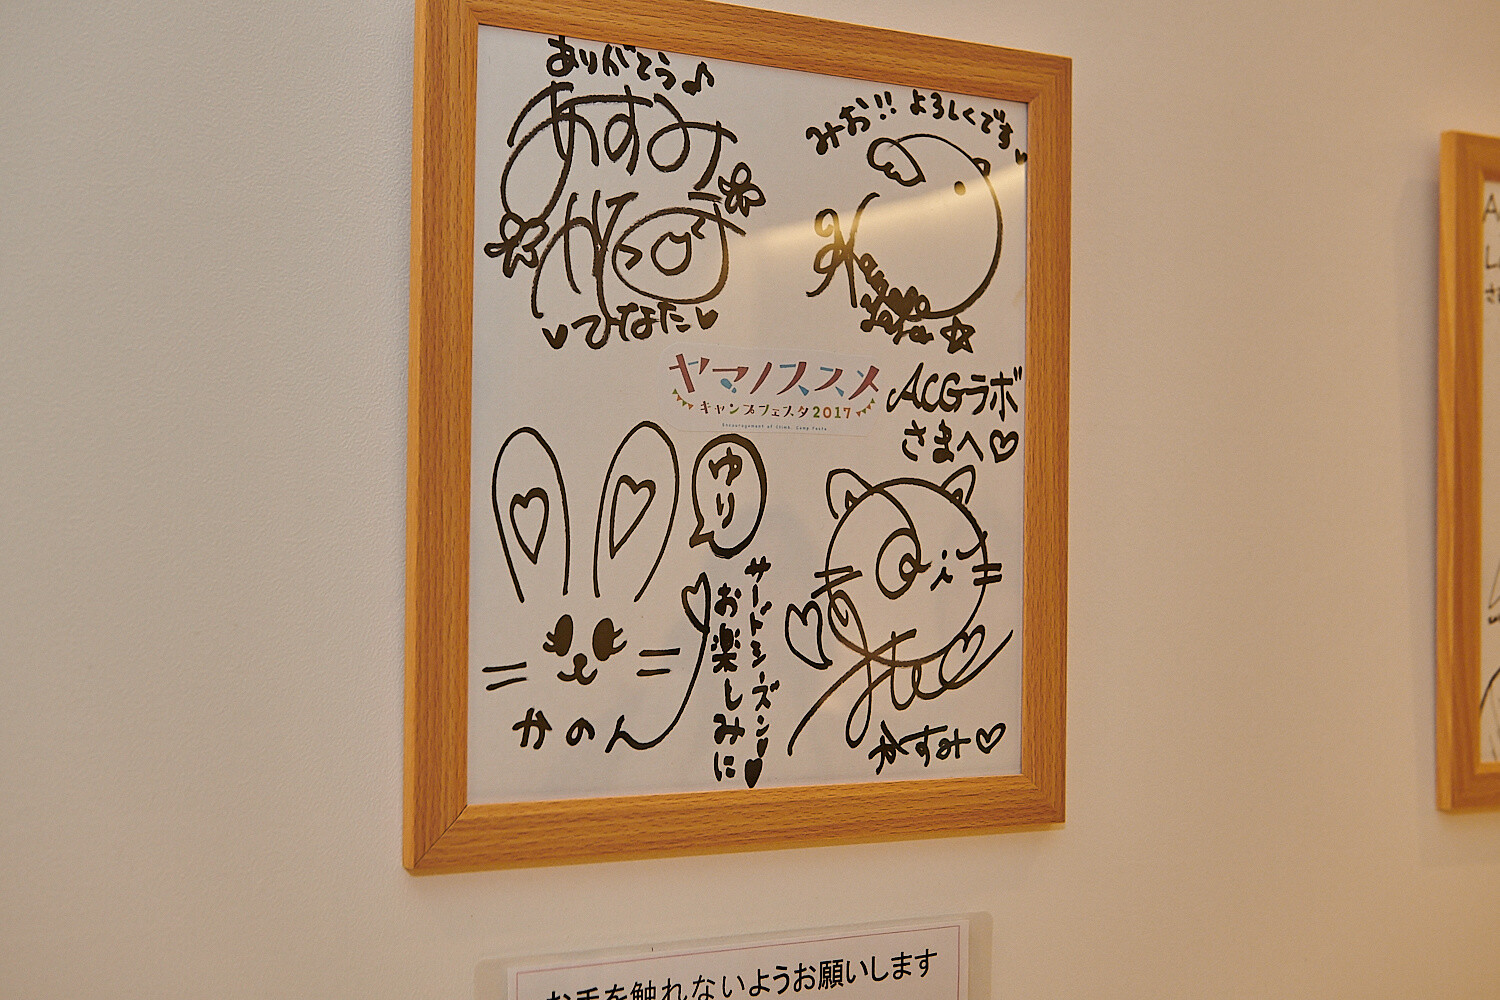 ありがとう♪
あすみ
かな
♡ひなた♡
みお!! よろしくです♡
ヤマノススメ
キャンプフェスタ2017
Encouragement of Climb. Camp Festa
ACGラボ
さまへ♡
ゆり
サードシーズン♡♥
お楽しみに
かのん
かすみ♡
お手を触れないようお願いします